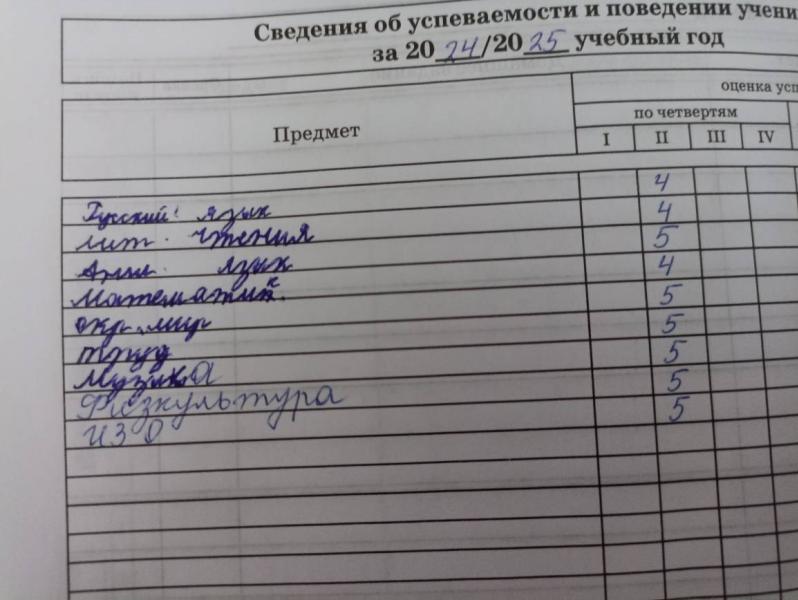 Сведения об успеваемости и поведении учени
за 2024/2025 учебный год
Предмет
оценка усп
по четвертям
I II III IV
Русский язык 4
лит. чтения 4
Англ. язык 5
математик 4
окр. мир 5
труд 5
Музыка 5
Физкультура 5
ИЗО 5